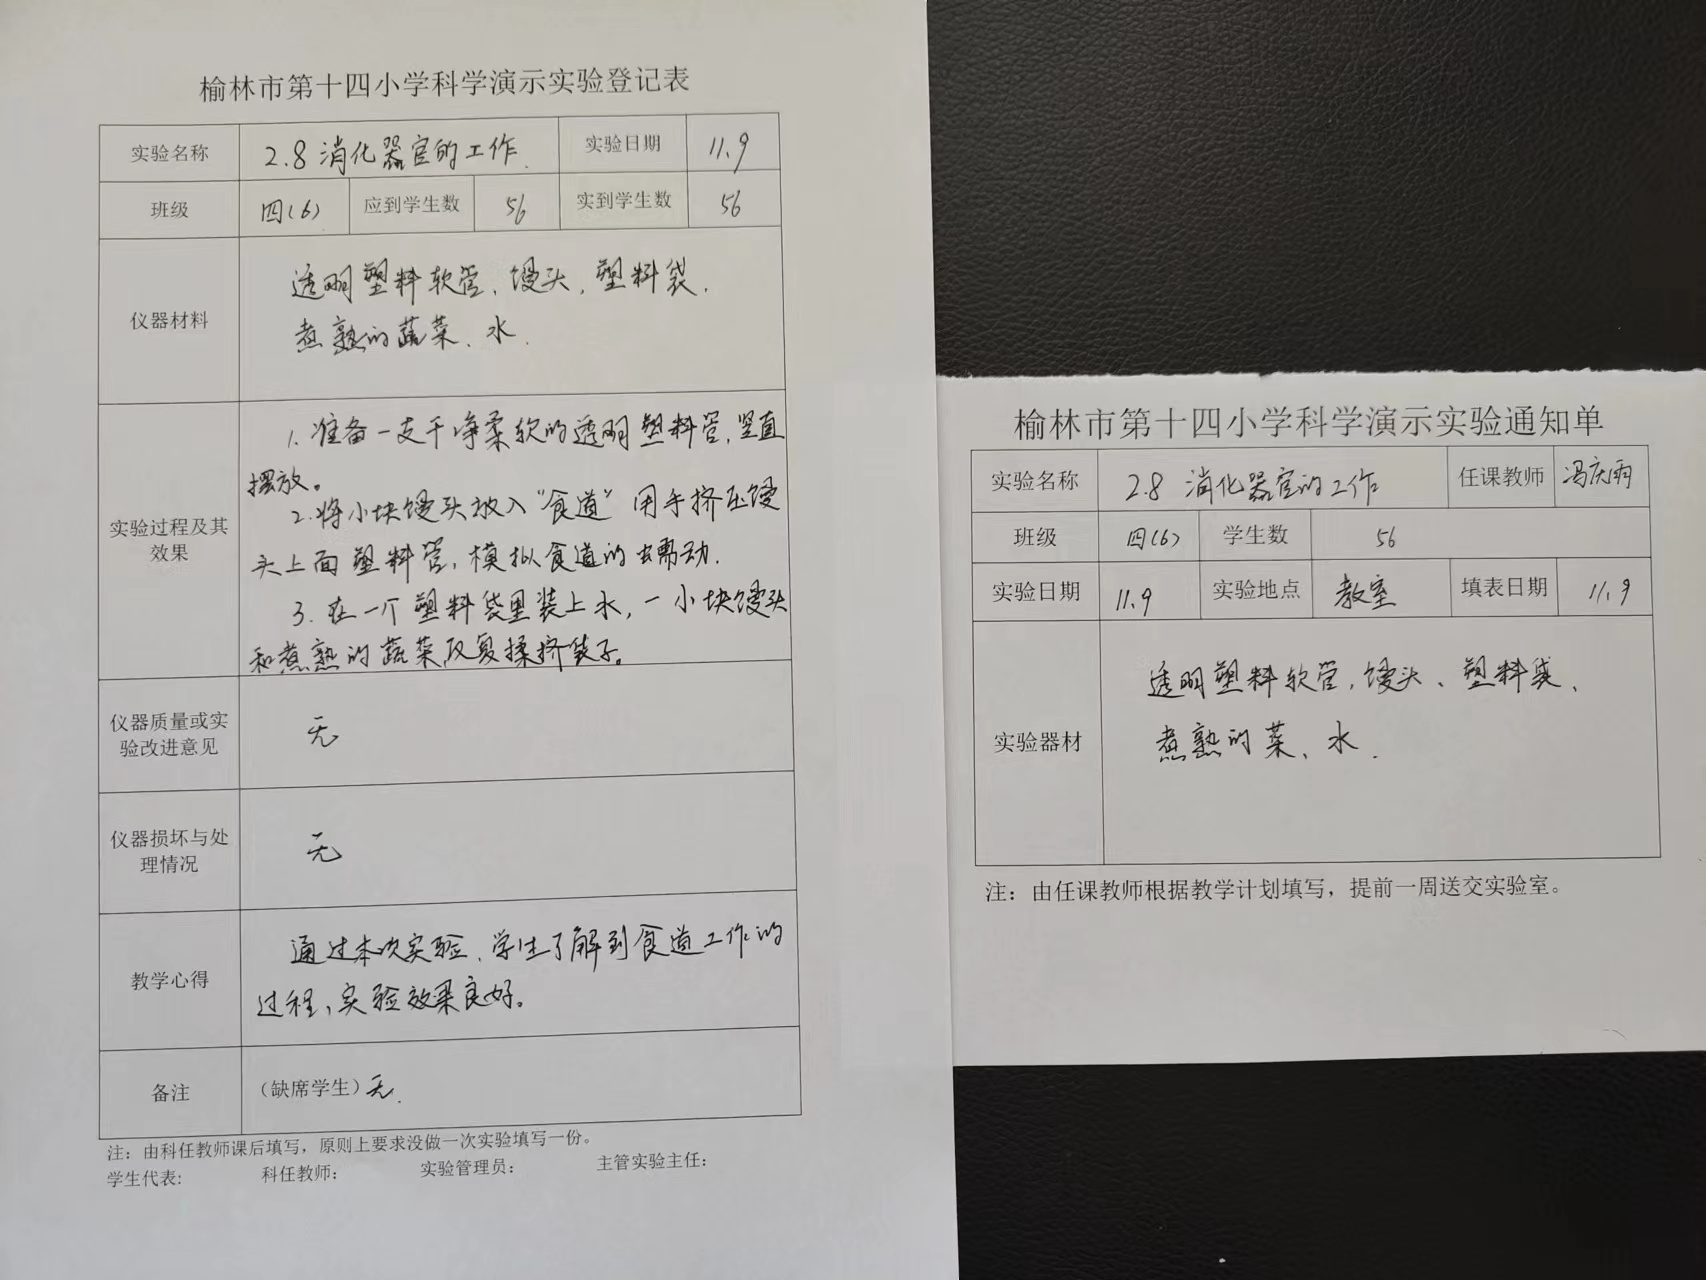 榆林市第十四小学科学演示实验登记表
实验名称 2.8 消化器官的工作. 实验日期 11.9
班级 四(6) 应到学生数 56 实到学生数 56
仪器材料
透明塑料软管、馒头、塑料袋、
煮熟的蔬菜、水.
实验过程及其
效果
1. 准备一支干净柔软的透明塑料管,竖直
摆放。
2.将小块馒头放入“食道”用手挤压馒
头上面塑料管,模拟食道的蠕动.
3. 在一个塑料袋里装上水,一小块馒头
和煮熟的蔬菜反复揉挤袋子。
仪器质量或实
验改进意见
无
仪器损坏与处
理情况
无
教学心得
通过本次实验、学生了解到食道工作的
过程,实验效果良好。
备注 (缺席学生)无.
注:由科任教师课后填写,原则上要求没做一次实验填写一份。
学生代表: 科任教师: 实验管理员: 主管实验主任:
榆林市第十四小学科学演示实验通知单
实验名称 2.8 消化器官的工作 任课教师 冯庆雨
班级 四(6) 学生数 56
实验日期 11.9 实验地点 教室 填表日期 11.9
实验器材
透明塑料软管,馒头、塑料袋、
煮熟的菜、水.
注:由任课教师根据教学计划填写,提前一周送交实验室。